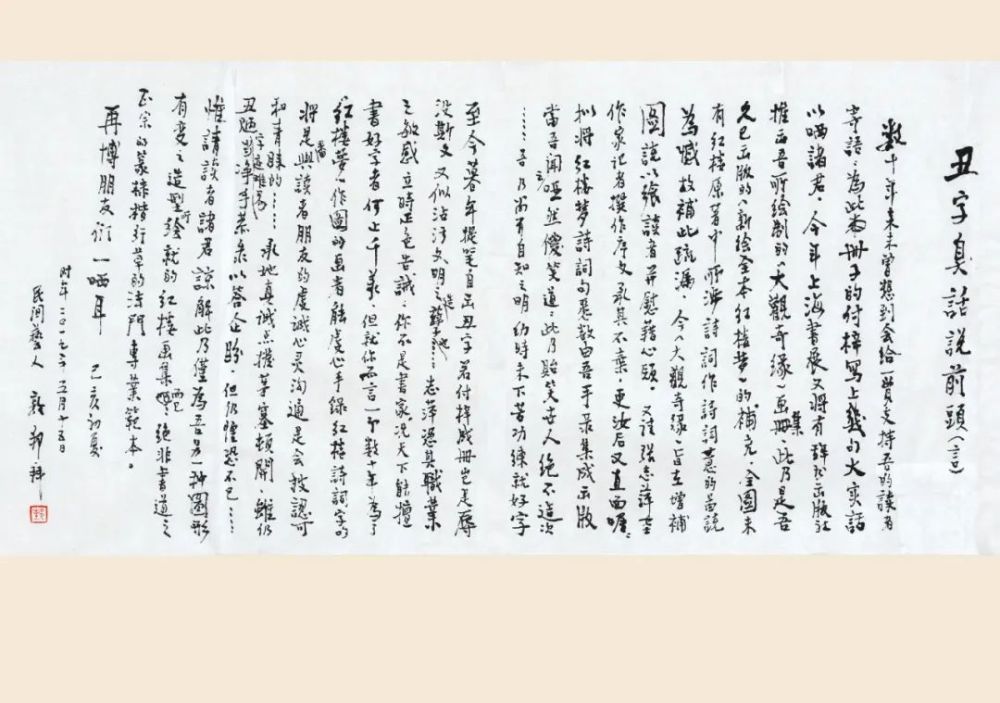 丑字臭話說前頭（言）
數十年来未曾想到会给一贯支持吾的读者
寄語：為此画冊子的付梓寫上幾句大实話
以哂諸君。今年上海書展又將有辞书出版社
推出吾所绘制的《大觀奇缘》画册集此乃是吾
久已出版的《新绘全本红楼梦》的補充，全图未
有红楼原著中所涉詩詞作詩詞意的畵説
為憾故補此疏漏，今《大觀奇缘》旨在增補
圖説以张讀者并慰藉心頤。又请张志萍
作家记者撰作序文承其不棄，更汝后又直面
拟將红楼梦詩詞句悉数由吾手录集成出版
當吾闻之哑然傻笑道：此乃貽笑世人绝不造次
……吾乃尚有自知之明幼時未下苦功練就好字
至今暮年提笔自出丑字若付梓成册岂是辱
没斯文又似沾污文明之……志萍憑其職業
之敏感立時正色告誡：你不是書家，况天下能擅
書好字者何止千萬，但就你而言一介数十年為了
《红楼梦》作圖的画者能虔心手録红楼詩詞字的
將是與讀者朋友的虔诚心灵沟通是会被認可
和青睐的……承她真诚点拨茅塞頓開，雖仍
丑陋当净手焚香以答企盼，但仍惶恐不已……
惟請讀者諸君諒解此乃僅為吾另一种圖形
有变之造型所绘就的红楼画集而已，绝非书道之
正宗的篆棣楷行草的法門專業範本。
再博朋友们一哂耳 己亥初夏
时年二〇一九年五月十五日
民间藝人 敦邦拜